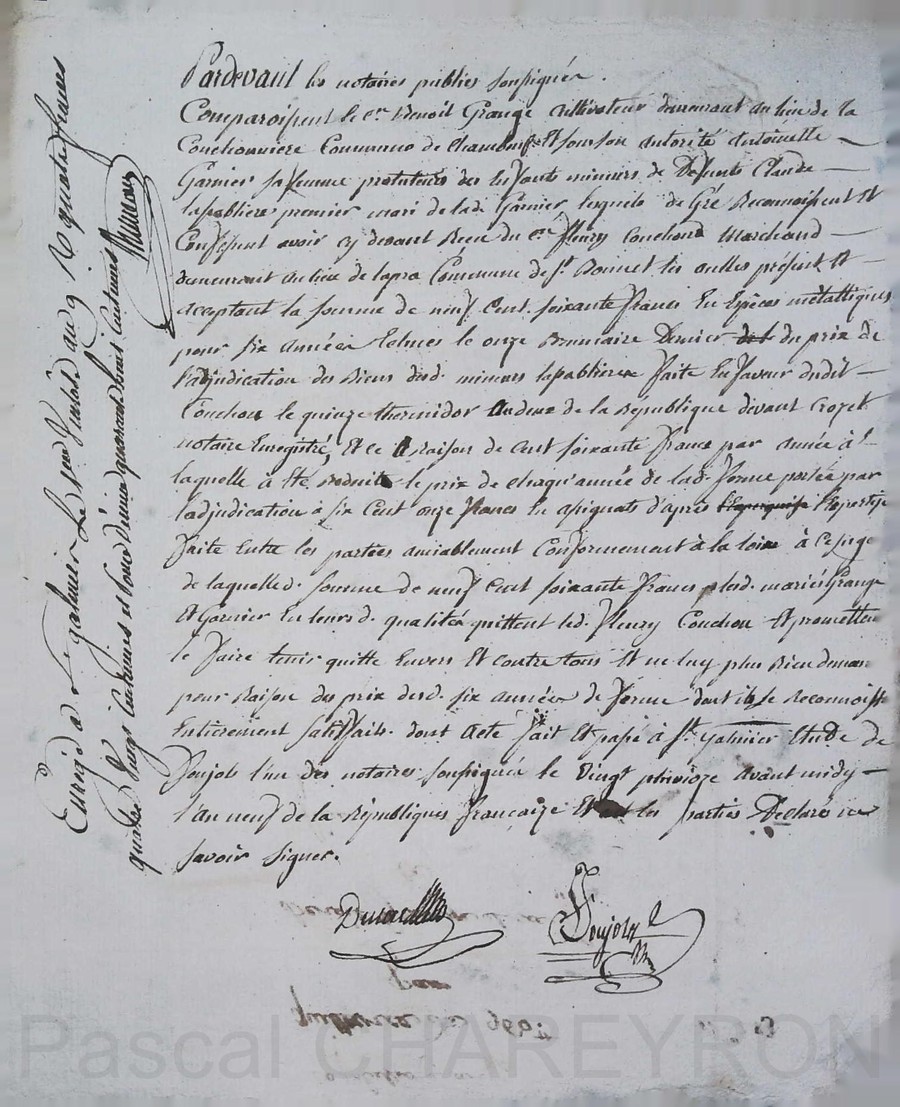 Pardevant les notaires publics soussignés.
Comparoissent le c.en Benoit Grange Cultivateur demeurant au lieu de la
Couchonniere Commune de Chambœuf Et sous son autorité Antoinette
Garnier sa femme protuteurs des Enfants mineurs de Defunts Claude
lapabliere premier mari de lad. Garnier lesquels de Gré Reconnoissent Et
Confessent avoir cy devant Recu du c.en fleury Couchoud Marchand
demeurant au lieu de lapra Commune de S.t Bonnet les oulles présent Et
acceptant la somme de neuf Cent soixante francs En Espèces métalliques
pour six années Echues le onze Brumaire Dernier du prix de
l'adjudication des Biens desd. mineurs lapabliere faite En faveur dudit
Couchou le quinze thermidor an deux de la République devant crozet
notaire Enregistré, Et ce a Raison de Cent soixante francs par année à
laquelle a Eté Réduite le prix de chaqu'année de lad. ferme portée par
ladjudication à six Cent onze francs En assignats d'après l'Expertise
faite Entre les parties amiablement Conformement à la loi à ce sujet
de laquelle d. somme de neuf Cent soixante francs lesd. mariés Grange
Et Garnier En leurs d. qualités quittent led. fleury Couchou Et promettent
le faire tenir quitte Envers Et contre tous Et ne luy plus Rien deman
pour Raison des prix desd. six années de ferme dont ils se Reconnoiss
Entièrement Satisfaits. dont Acte fait Et passé à S.t Galmier Etude de
Soujols l'un des notaires soussignés le Vingt pluvioze avant midy
l'an neuf de la République francaize Et les parties Déclaré ne
savoir signer.
Soujols
Enreg.é a S.t galmier Le pluviose an 9. R. quatre francs
quatre Vingt centimes et pour dixieme quarante huit Centimes
Pascal CHAREYRON